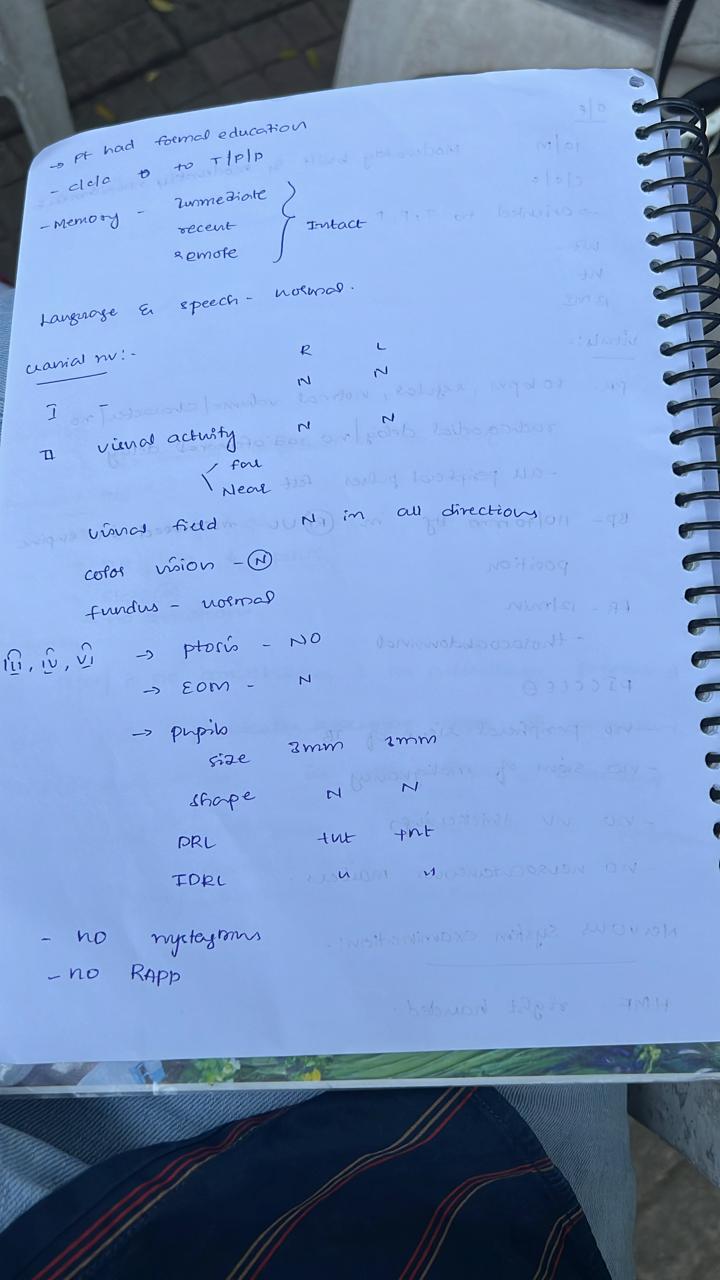 → Pt had formal education
- c/c/o to T/P/P
- Memory - Immediate
recent } Intact
Remote
Language & speech - normal.
Cranial nv:-
R L
I - N N
II visual activity N N
< far
Near
visual field N, in all directions
color vision - (N)
fundus - normal
III, IV, VI → ptosis - NO
→ EOM - N
→ pupils
size 3mm 3mm
shape N N
DRL +nt +nt
IDRL " "
- no nystagmus
- no RAPD